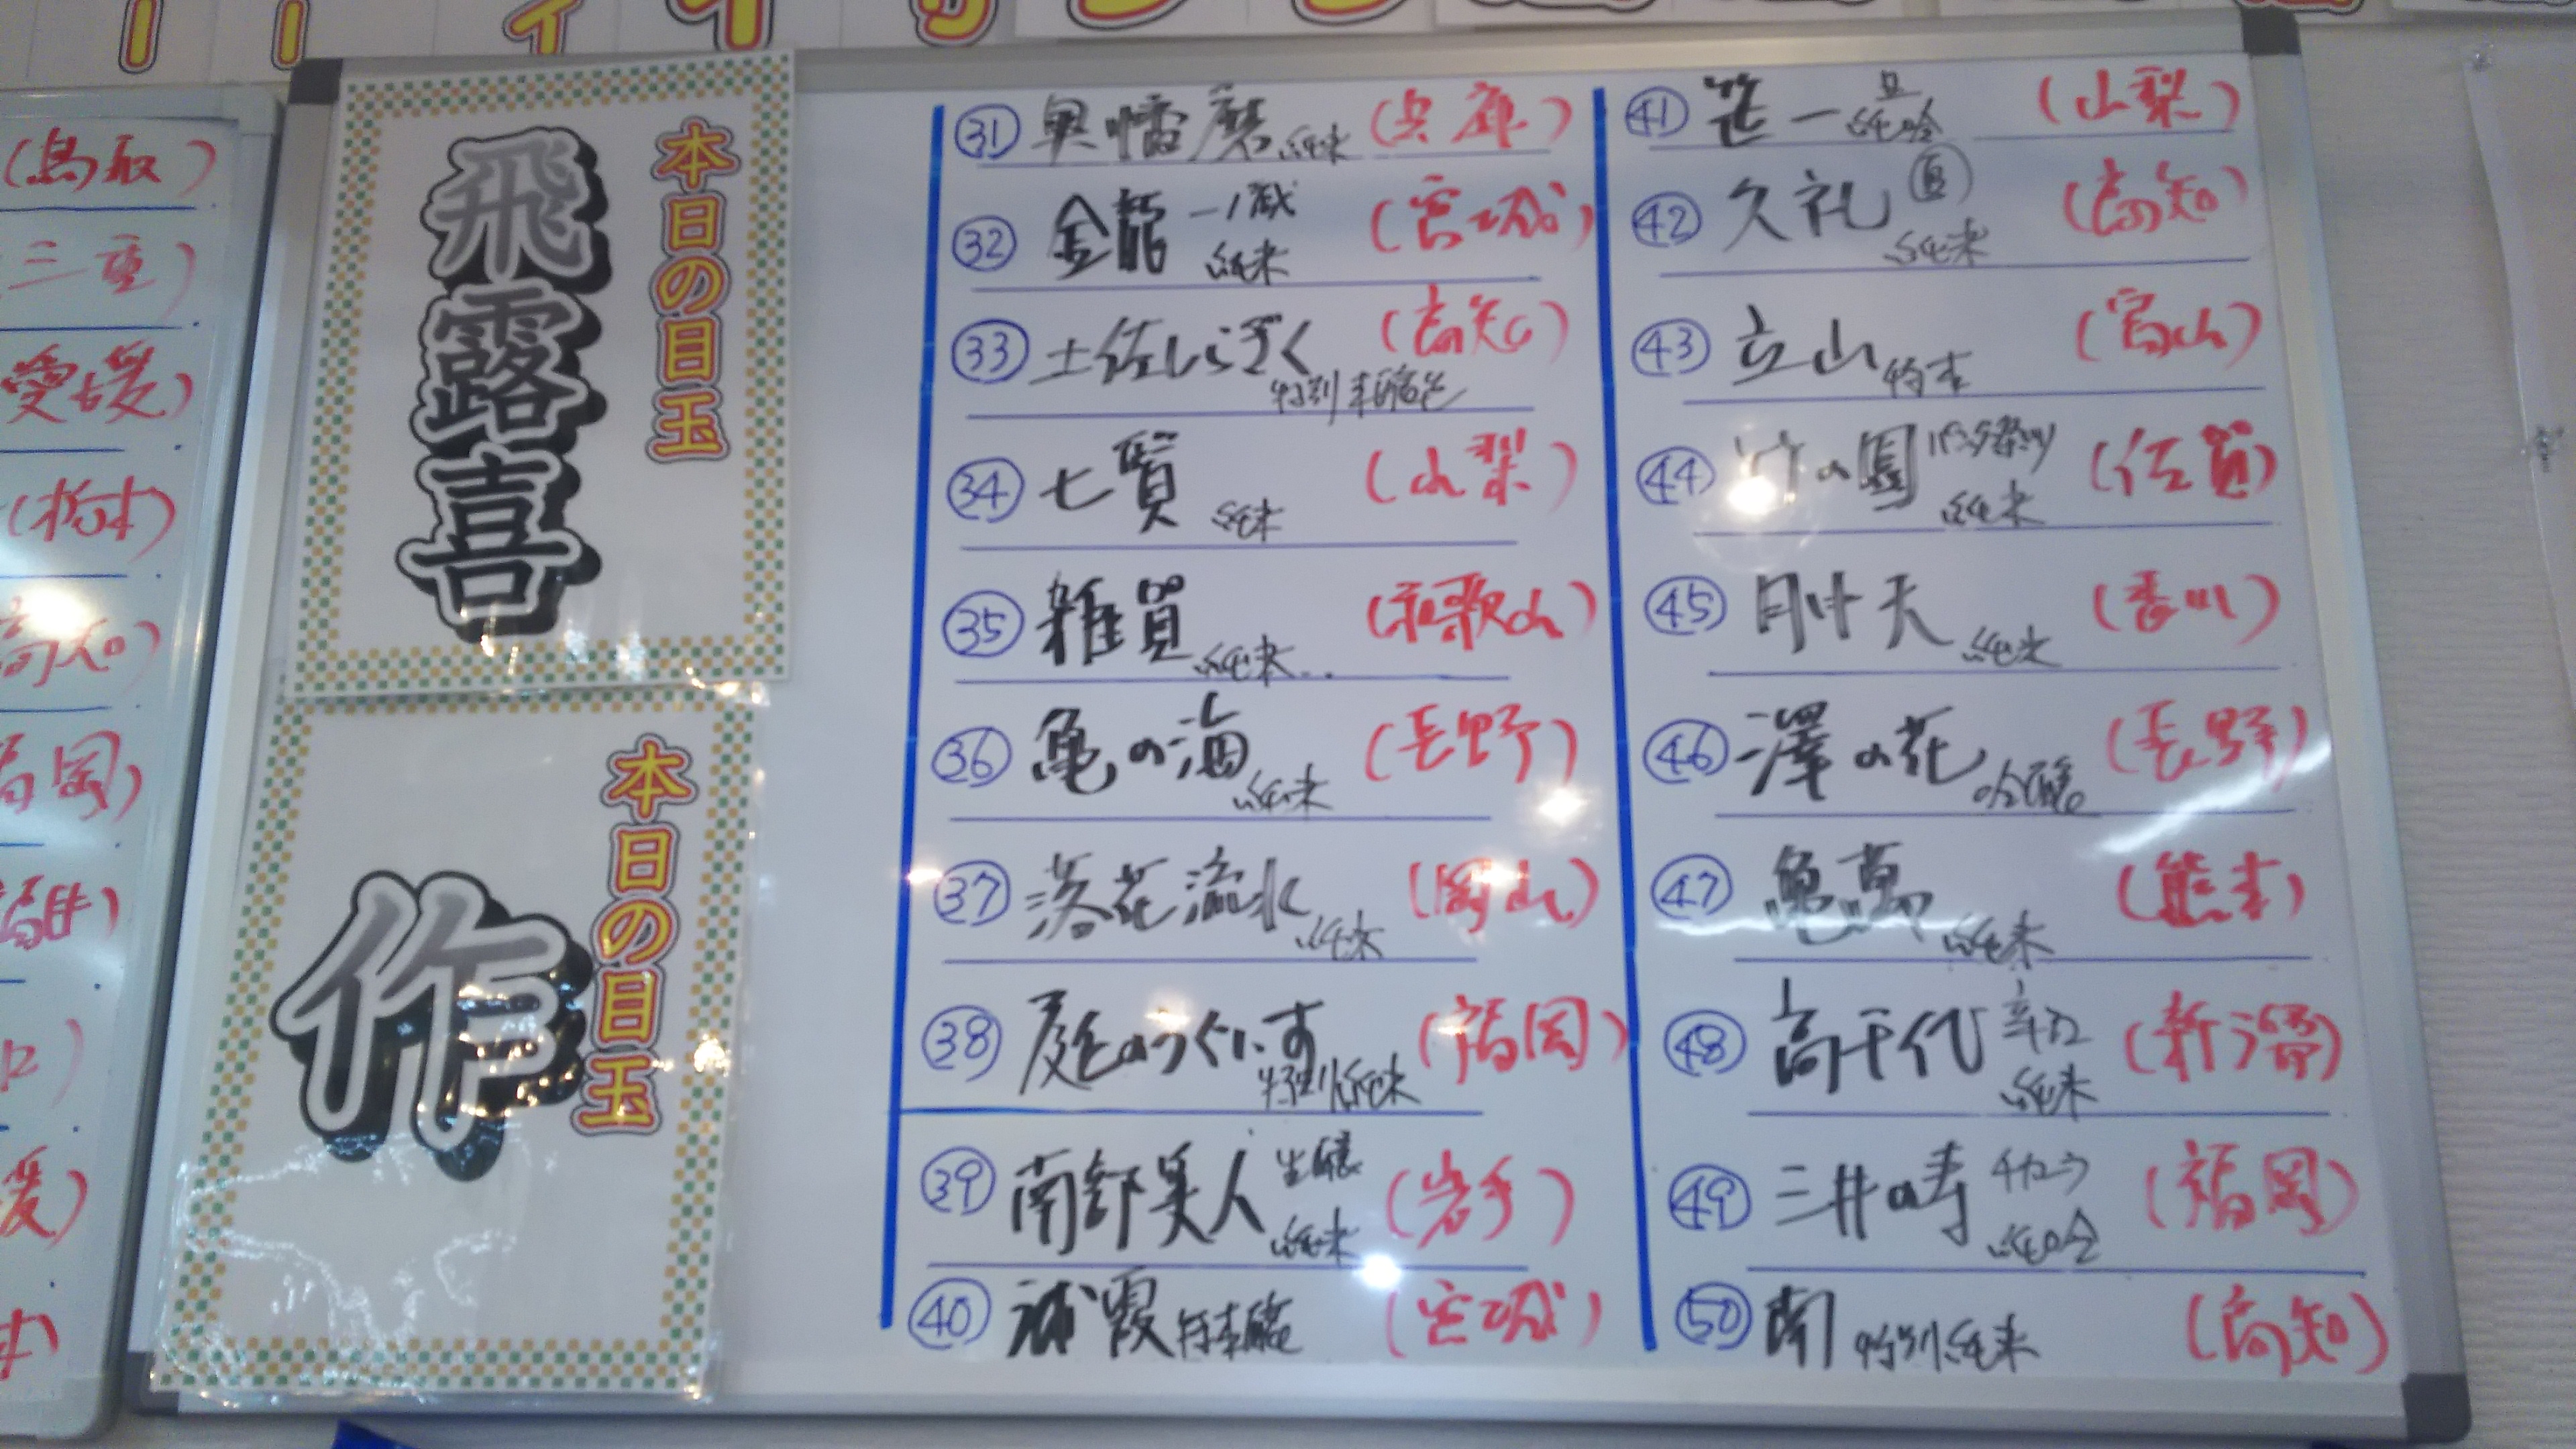 (鳥取)
三重)
愛媛)
(栃木)
高知)
福岡)
福井)
媛)
本日の目玉
飛露喜
本日の目玉
作
㉛ 奥播磨 純米 (兵庫)
㉜ 金龍 一ノ蔵 純米 (宮城)
㉝ 土佐しらぎく 特別本醸造 (高知)
㉞ 七賢 純米 (山梨)
㉟ 雑賀 純米 (和歌山)
㊱ 亀の海 純米 (長野)
㊲ 落花流水 純米 (岡山)
㊳ 庭のうぐいす 特別純米 (福岡)
㊴ 南部美人 生酛 純米 (岩手)
㊵ 浦霞 特本醸 (宮城)
㊶ 笹一 純吟 (山梨)
㊷ 久礼 純米 (高知)
㊸ 立山 特本 (富山)
㊹ 竹の園 純米 (佐賀)
㊺ 川鶴 純米 (香川)
㊻ 澤の花 吟醸 (長野)
㊼ 亀萬 純米 (熊本)
㊽ 高千代 辛口 純米 (新潟)
㊾ 三井の寿 チカーラ 純吟 (福岡)
㊿ 南 特別純米 (高知)